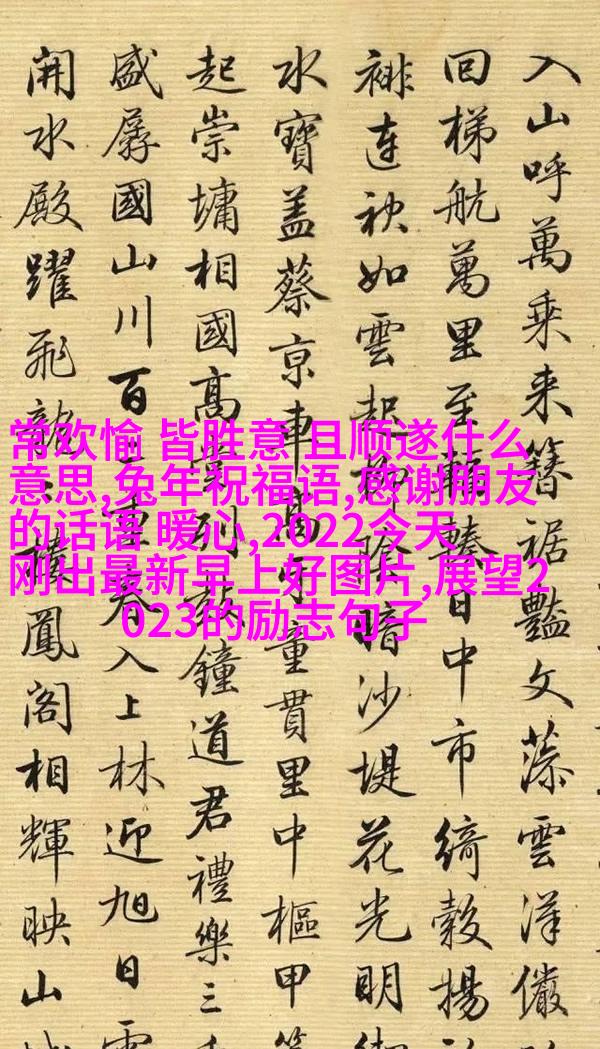 入山呼萬乘来簪裾豔文藻雲洋儼
回梯航萬里至輻輳日中市綺縠揚
連袂如雲起柳陰暗沙堤花光明
水寶蓋蔡京車高牙童貫里中樞甲
起崇墉相國高列鼓鐘道君禮樂三
盛孱國山川百二重春入上林迎旭日雲
開水殿躍飛龍鳳閣相輝映山
常欢愉 皆胜意 且顺遂什么
意思,兔年祝福语,感谢朋友
的话语 暖心,2022今天
刚出最新早上好图片,展望2
023的励志句子